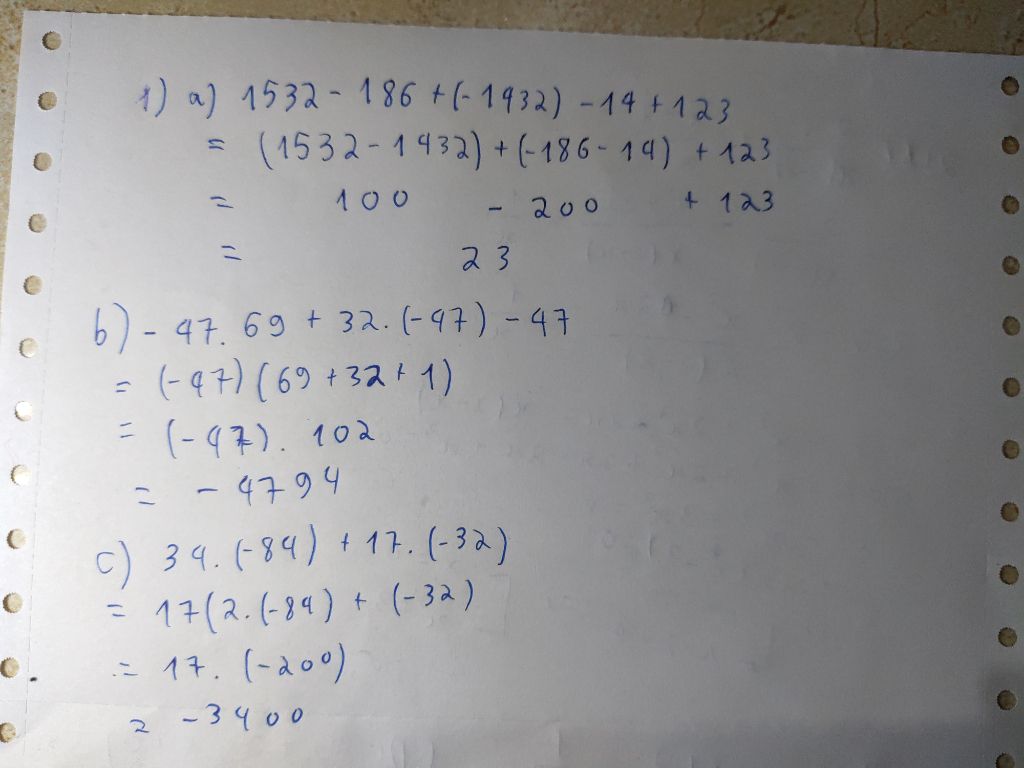 1) a) 1532 - 186 + (-1432) - 14 + 123
= (1532 - 1432) + (-186 - 14) + 123
= 100 - 200 + 123
= 23
b) - 47. 69 + 32. (-47) - 47
= (-47) (69 + 32 + 1)
= (-47). 102
= - 4794
c) 34. (-84) + 17. (-32)
= 17(2. (-84) + (-32)
= 17. (-200)
= -3400